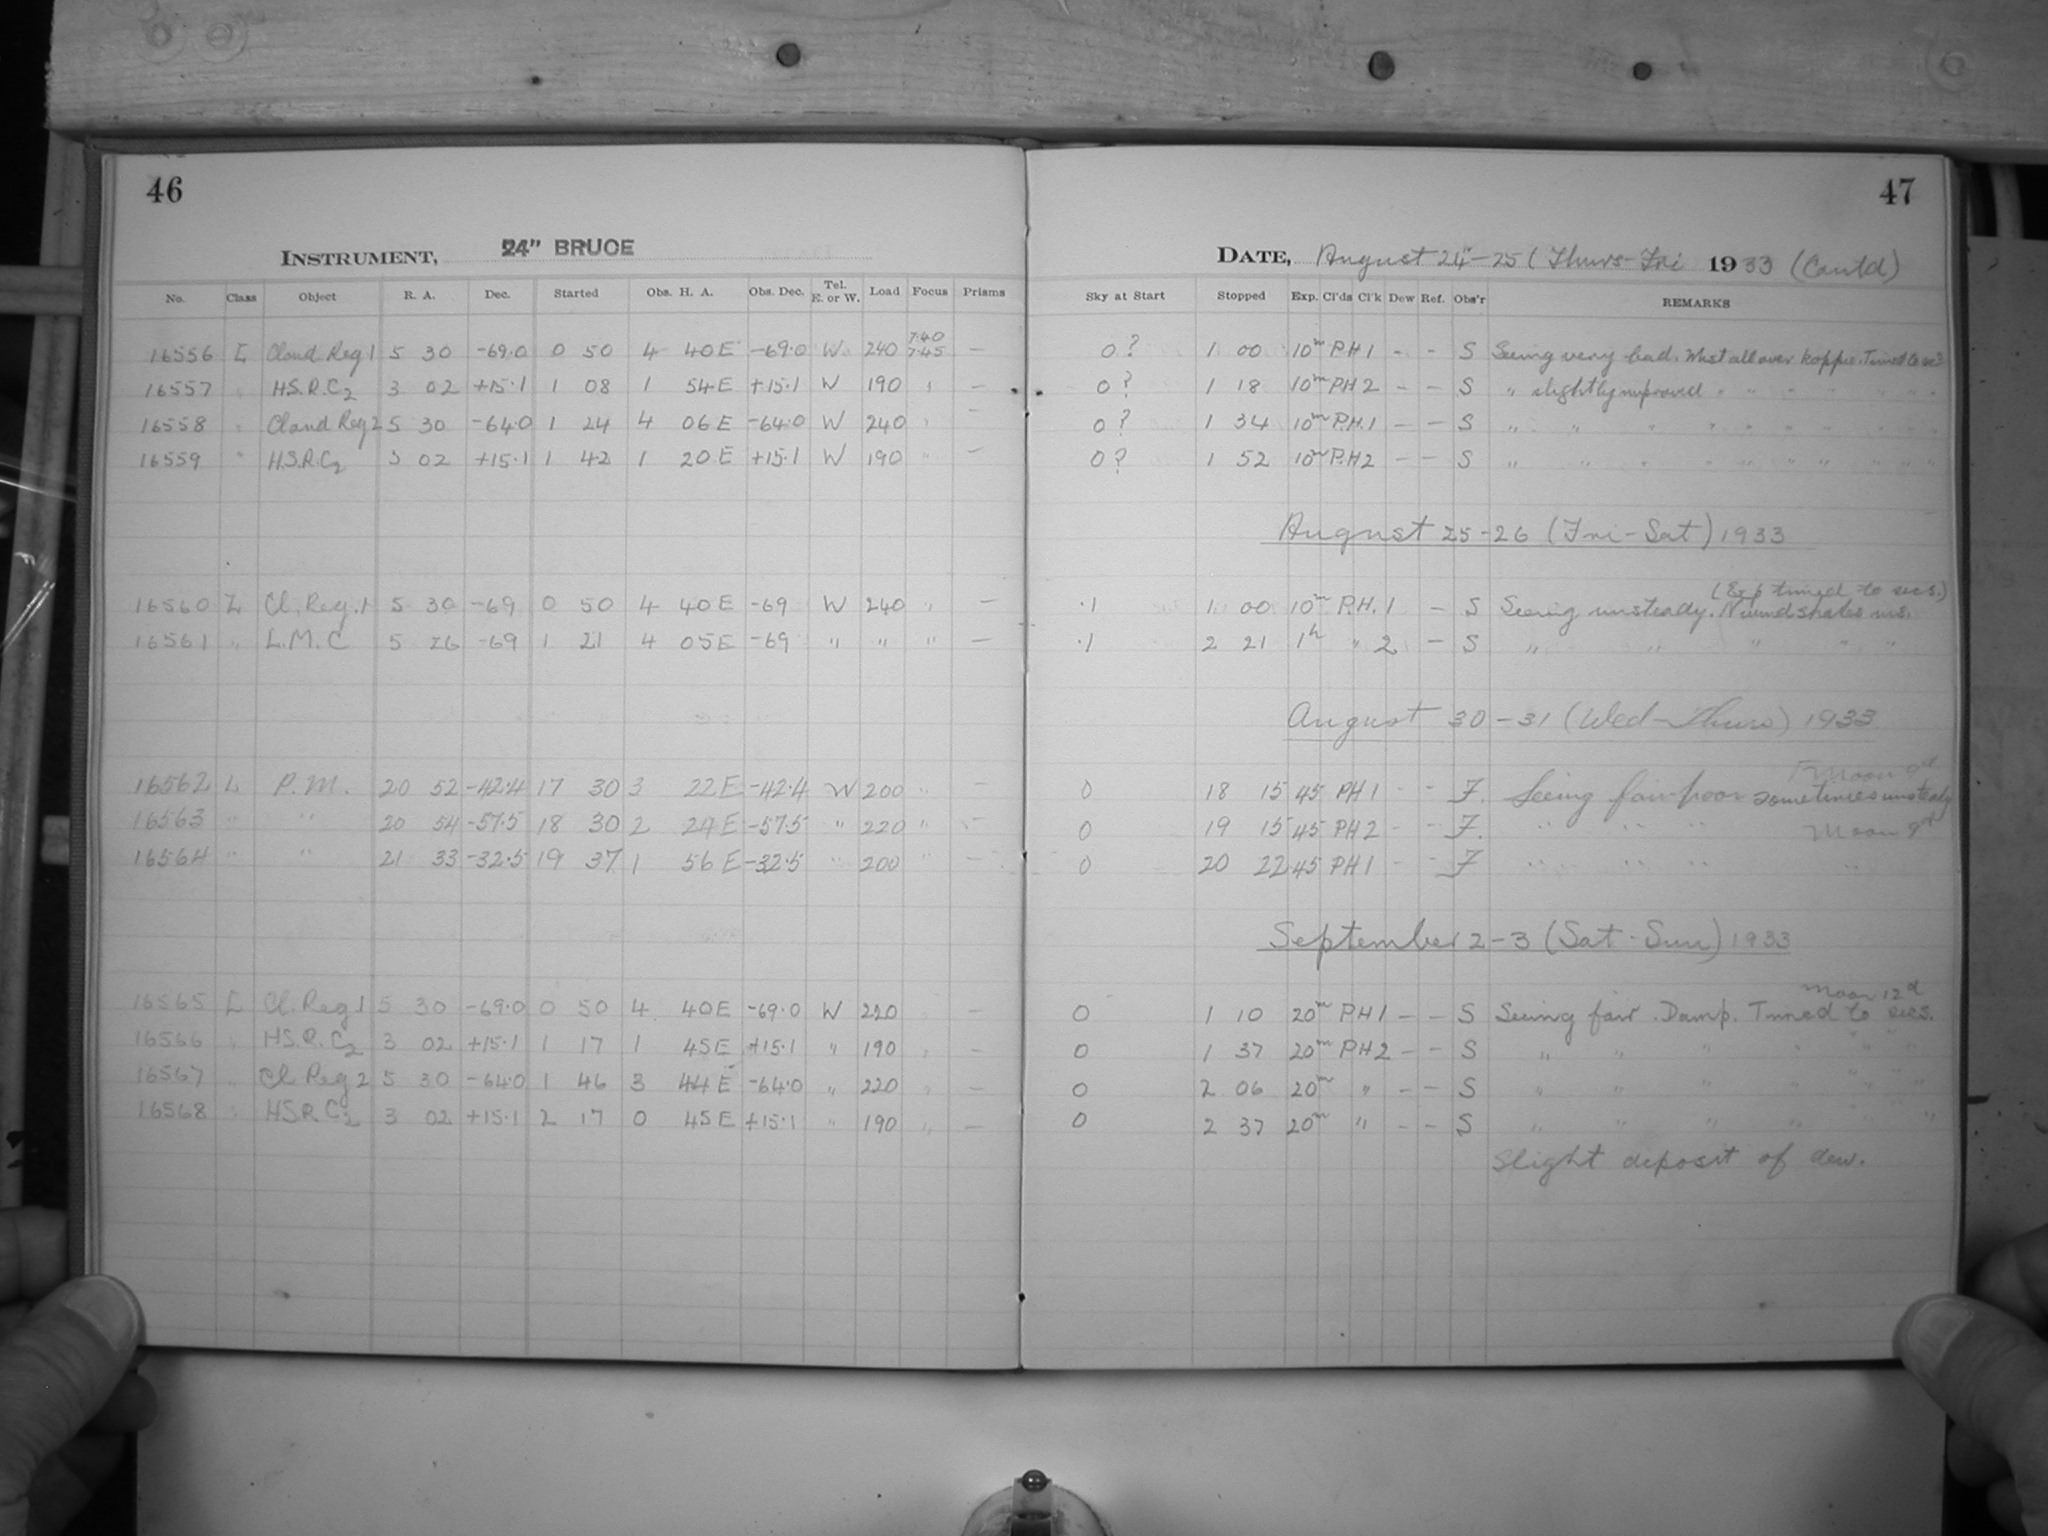 46
INSTRUMENT, 24" BRUCE
No. Class Object R. A. Dec. Started Obs. H. A. Obs. Dec. Tel. E. or W. Load Focus Prisms
16556 L Cloud Reg 1 5 30 -69.0 0 50 4 40E -69.0 W 240 7.40 7.45 —
16557 " H.S.R.C2 3 02 +15.1 1 08 1 54E +15.1 W 190 " —
16558 " Cloud Reg 2 5 30 -64.0 1 24 4 06E -64.0 W 240 " —
16559 " H.S.R.C2 3 02 +15.1 1 42 1 20E +15.1 W 190 " —
16560 L Cl. Reg. 1 5 30 -69 0 50 4 40E -69 W 240 " —
16561 " L.M.C 5 26 -69 1 21 4 05E -69 " " " —
16562 L P.M. 20 52 -42.4 17 30 3 22E -42.4 W 200 " —
16563 " " 20 54 -57.5 18 30 2 24E -57.5 " 220 " —
16564 " " 21 33 -32.5 19 37 1 56E -32.5 " 200 " —
16565 L Cl. Reg 1 5 30 -69.0 0 50 4 40E -69.0 W 220 "
16566 " H.S.R.C2 3 02 +15.1 1 17 1 45E +15.1 " 190 " —
16567 " Cl Reg 2 5 30 -64.0 1 46 3 44E -64.0 " 220 " —
16568 " H.S.R.C2 3 02 +15.1 2 17 0 45E +15.1 " 190 " —
47
DATE, August 24-25 (Thurs-Fri 1933 (Contd)
Sky at Start Stopped Exp. Cl'ds Cl'k Dew Ref. Obs'r REMARKS
0? 1 00 10m P.H 1 - - S Seeing very bad. Mist all over koppie. Timed to secs
0? 1 18 10m PH 2 - - S " slightly improved " " " "
0? 1 34 10m P.H.1 - - S " " " " " " "
0? 1 52 10m P.H2 - - S " " " " " " "
August 25-26 (Fri-Sat) 1933
(Exp timed to secs.)
.1 1 00 10m P.H. 1 - S Seeing unsteady. N wind shakes ins.
.1 2 21 1h " 2 - S " " " " "
August 30-31 (Wed-Thurs) 1933
Moon 9d
0 18 15 45 PH 1 - - F. Seeing fair-poor sometimes unsteady
0 19 15 45 PH2 - - F. " " " Moon 9d
0 20 22 45 PH1 - - F " " " "
September 2-3 (Sat-Sun) 1933
Moon 12d
0 1 10 20m PH1 - - S Seeing fair. Damp. Timed to secs.
0 1 37 20m PH2 - - S " " " " " "
0 2 06 20m " - - S " " " " " "
0 2 37 20m " - - S " " " " " "
Slight deposit of dew.